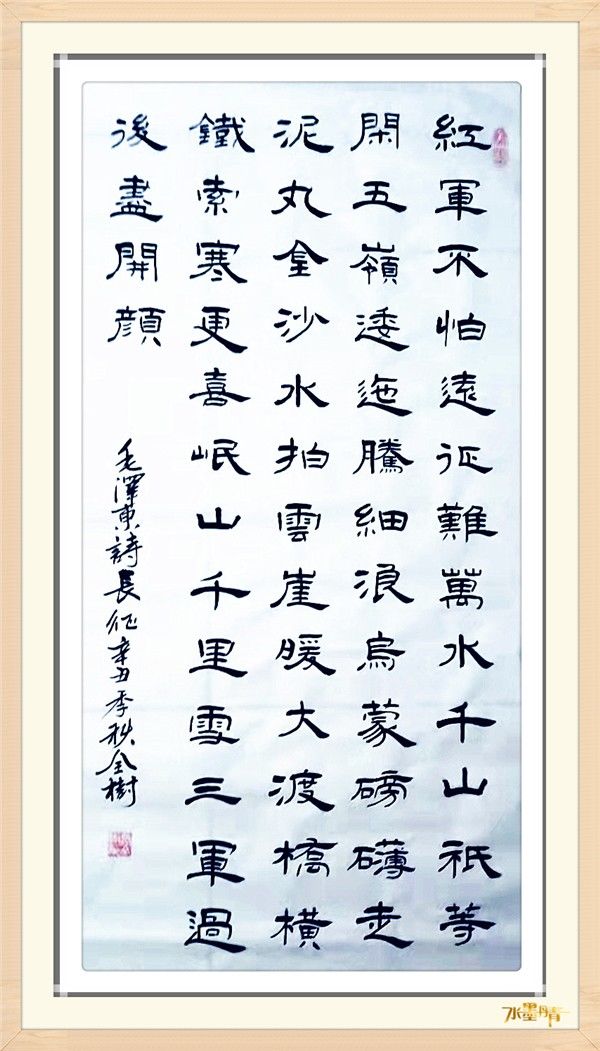 紅軍不怕遠征難萬水千山祇等
閑五嶺逶迤騰細浪烏蒙磅礴走
泥丸金沙水拍雲崖暖大渡橋橫
鐵索寒更喜岷山千里雪三軍過
後盡開顔
毛澤東詩長征辛丑季秋全樹
水墨丹青